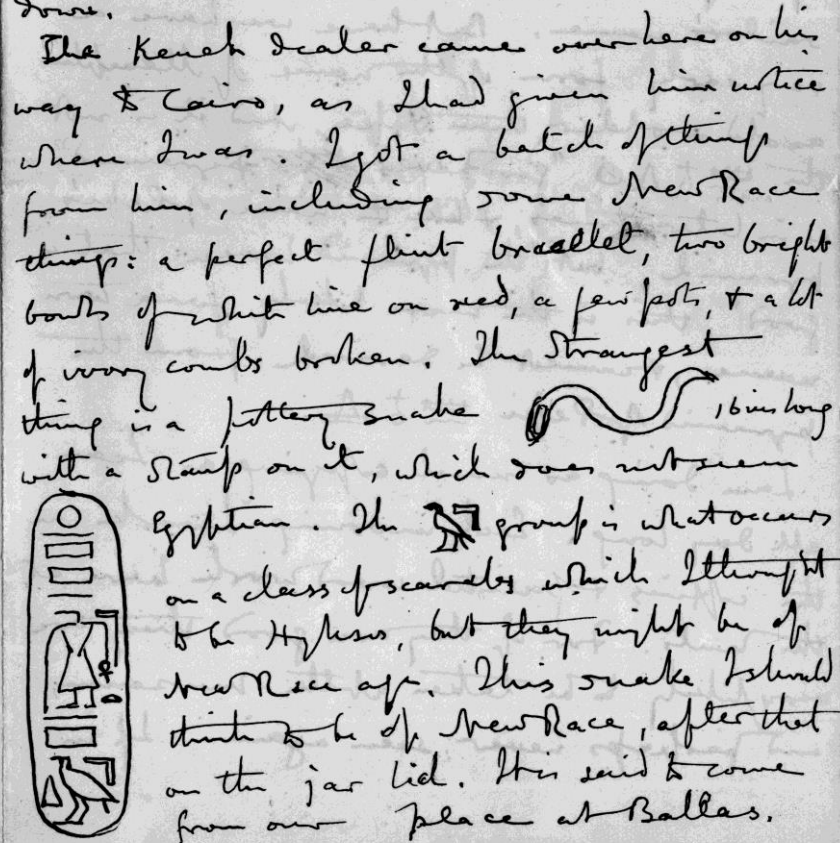 down.
The Keneh dealer came over here on his
way to Cairo, as I had given him notice
where I was. I got a batch of things
from him, including some New Race
things: a perfect flint bracelet, two bright
bowls of white line on red, a few pots, & a lot
of ivory combs broken. The strangest
thing is a pottery snake 16 ins long
with a stamp on it, which does not seem
Egyptian. The group is what occurs
on a class of scarabs which I thought
to be Hyksos, but they might be of
New Race age. This snake I should
think to be of New Race, after that
on the jar lid. It is said to come
from our place at Ballas.